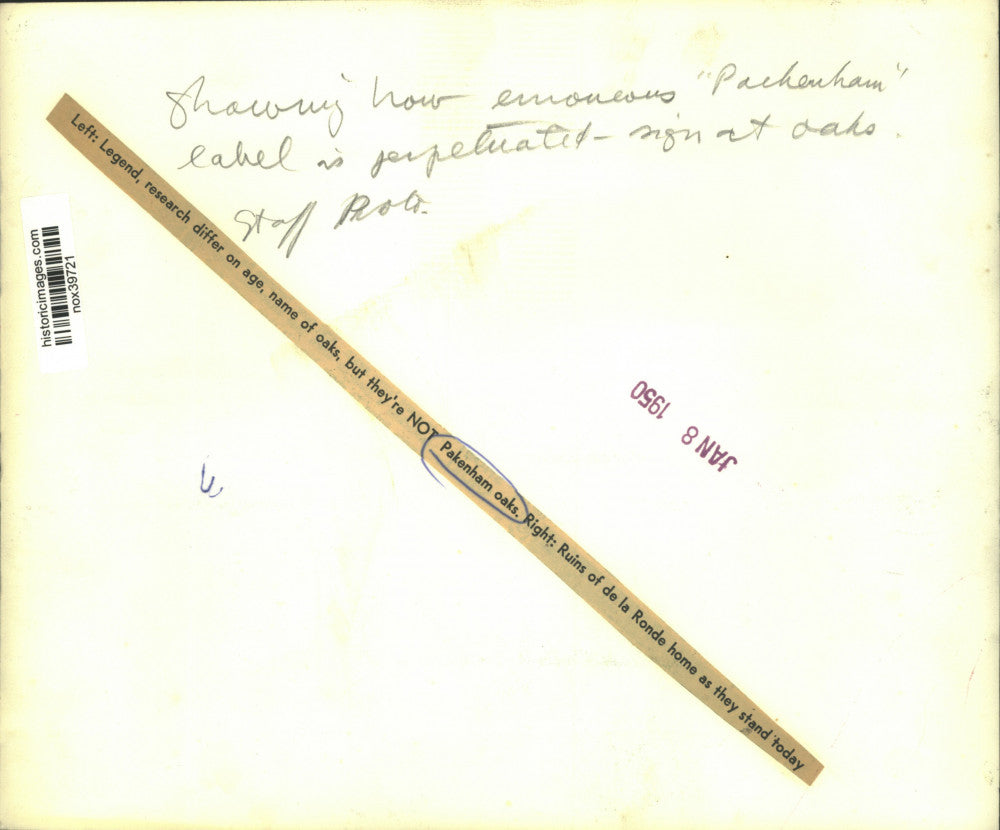 Showing how erroneous "Packenham"
label is perpetuated - sign at oaks.
Staff Photo.
Left: Legend, research differ on age, name of oaks, but they're NOT Pakenham oaks. Right: Ruins of de la Ronde home as they stand today
historicimages.com
nox39721
JAN 8 1950